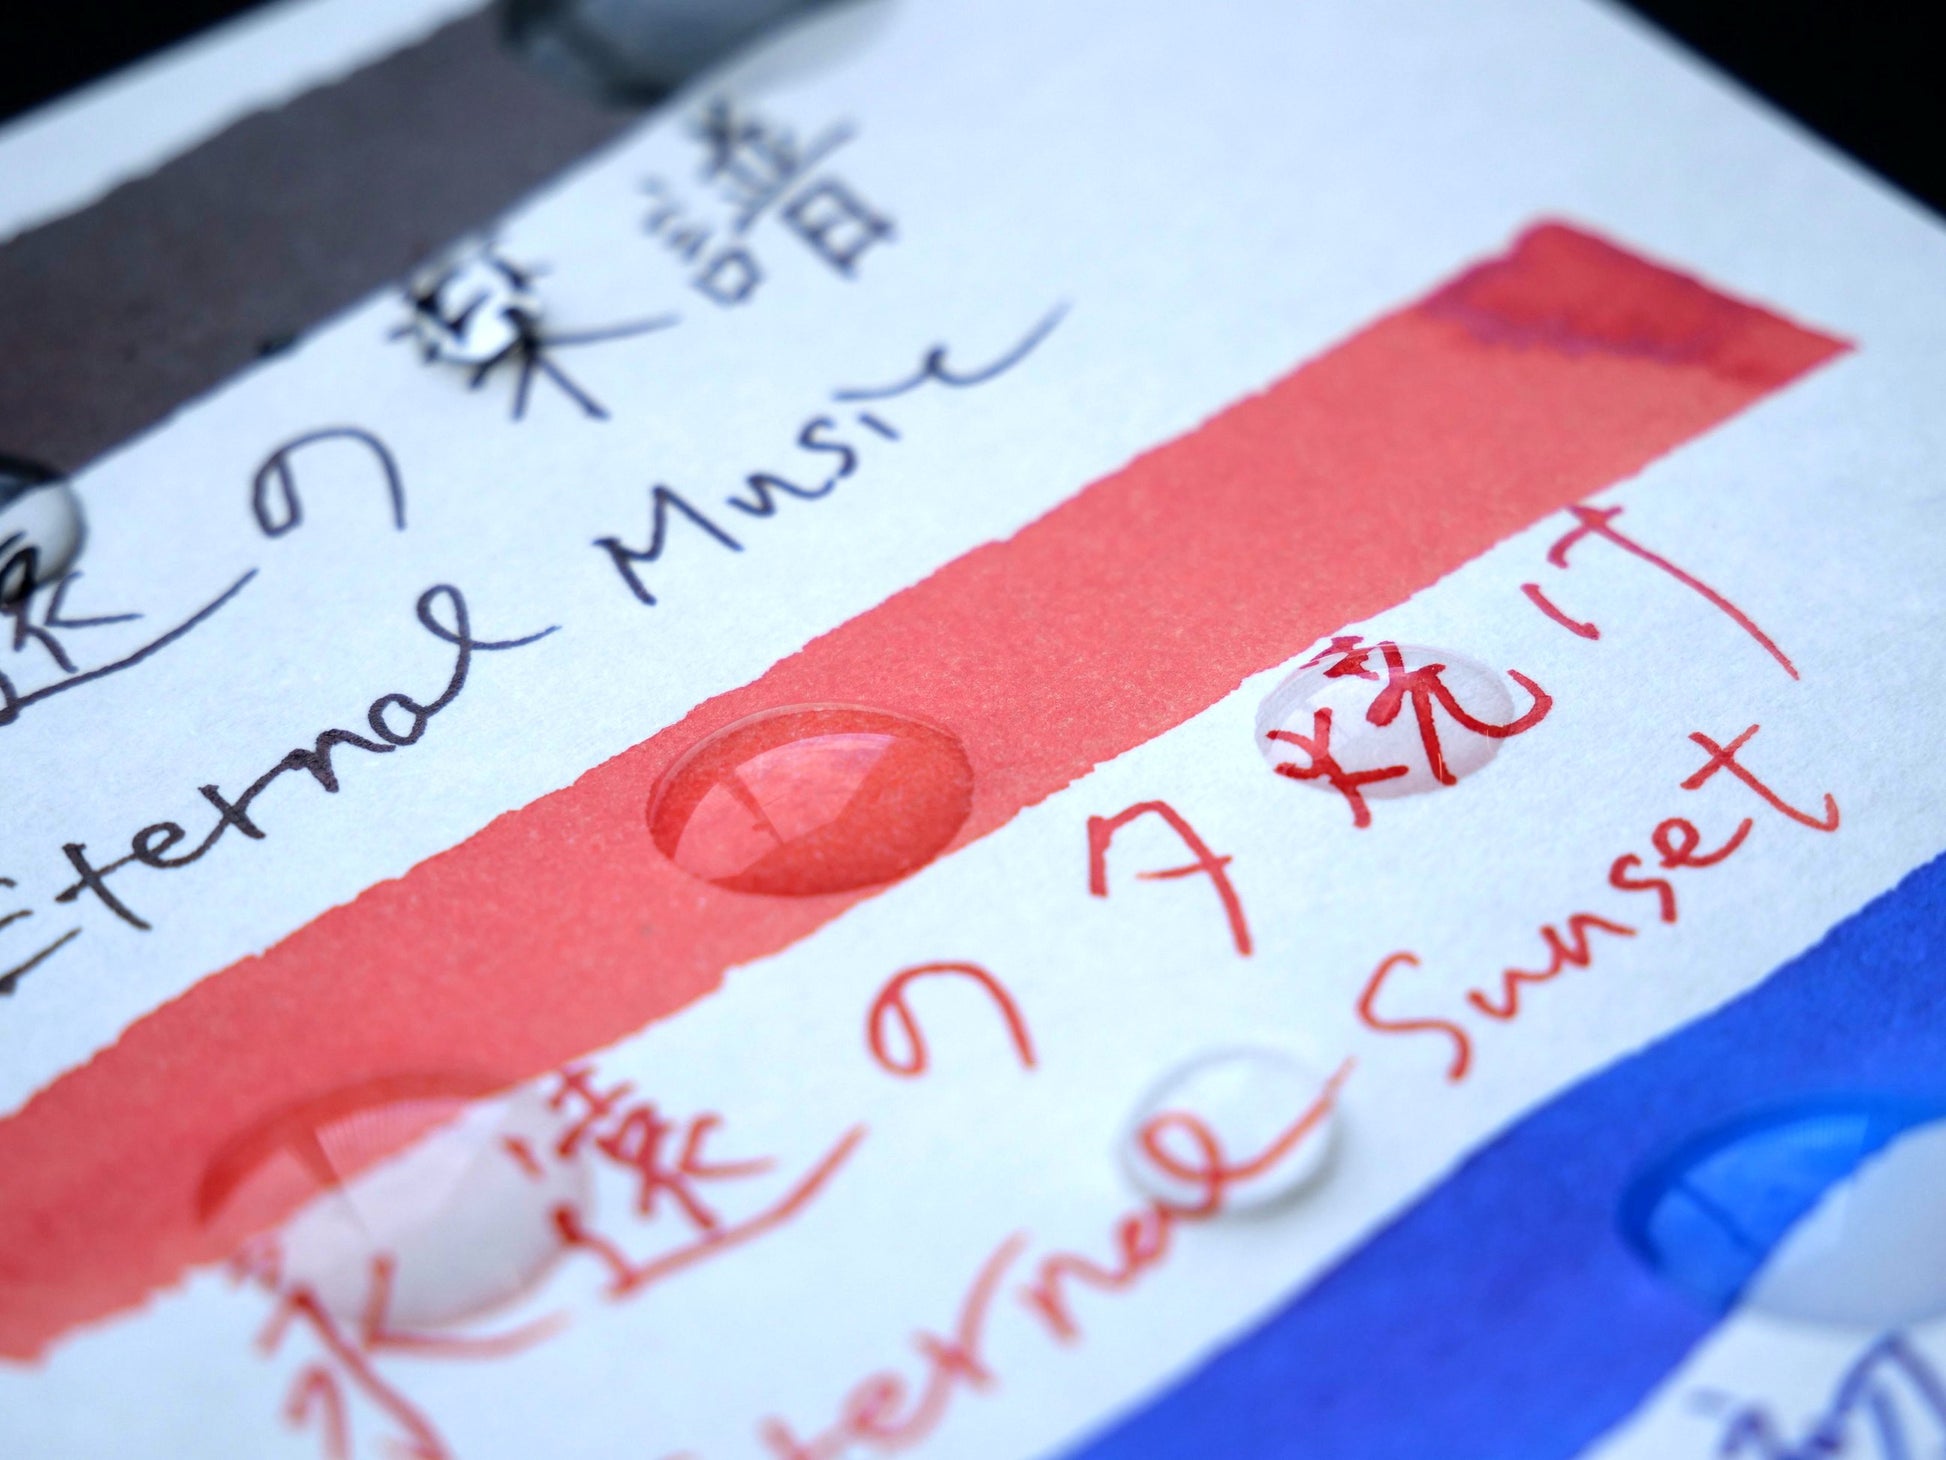 遠の楽譜
Eternal Music
永遠の夕焼け
ternal Sunset